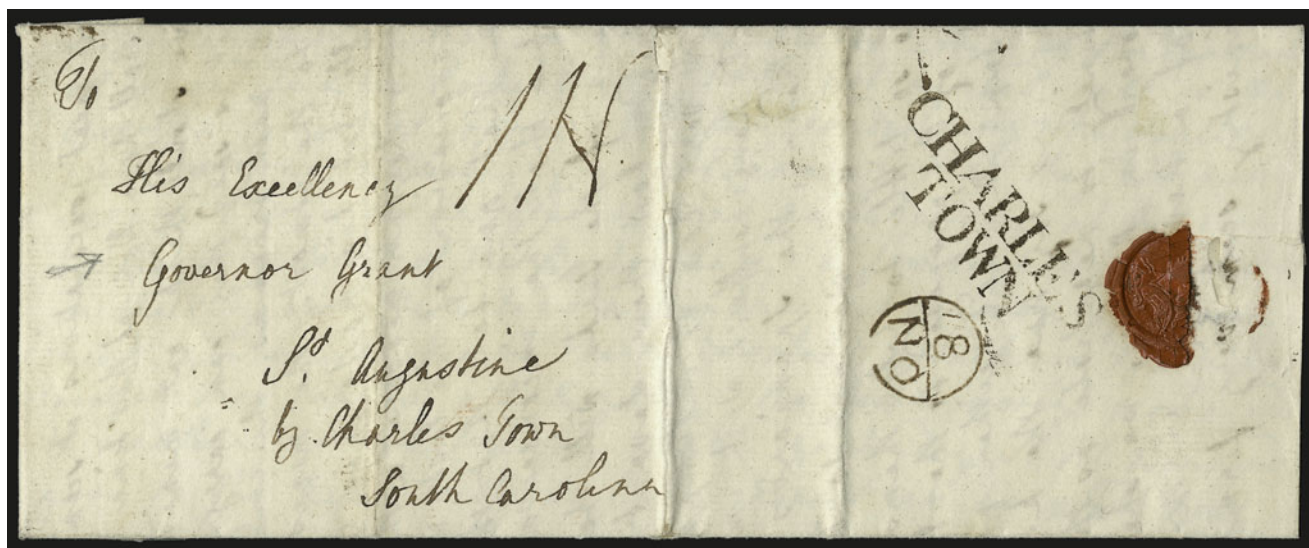 To
His Excellency
Governor Grant
St. Augustine
by Charles Town
South Carolina
1N
CHARLES
TOWN
18
NO